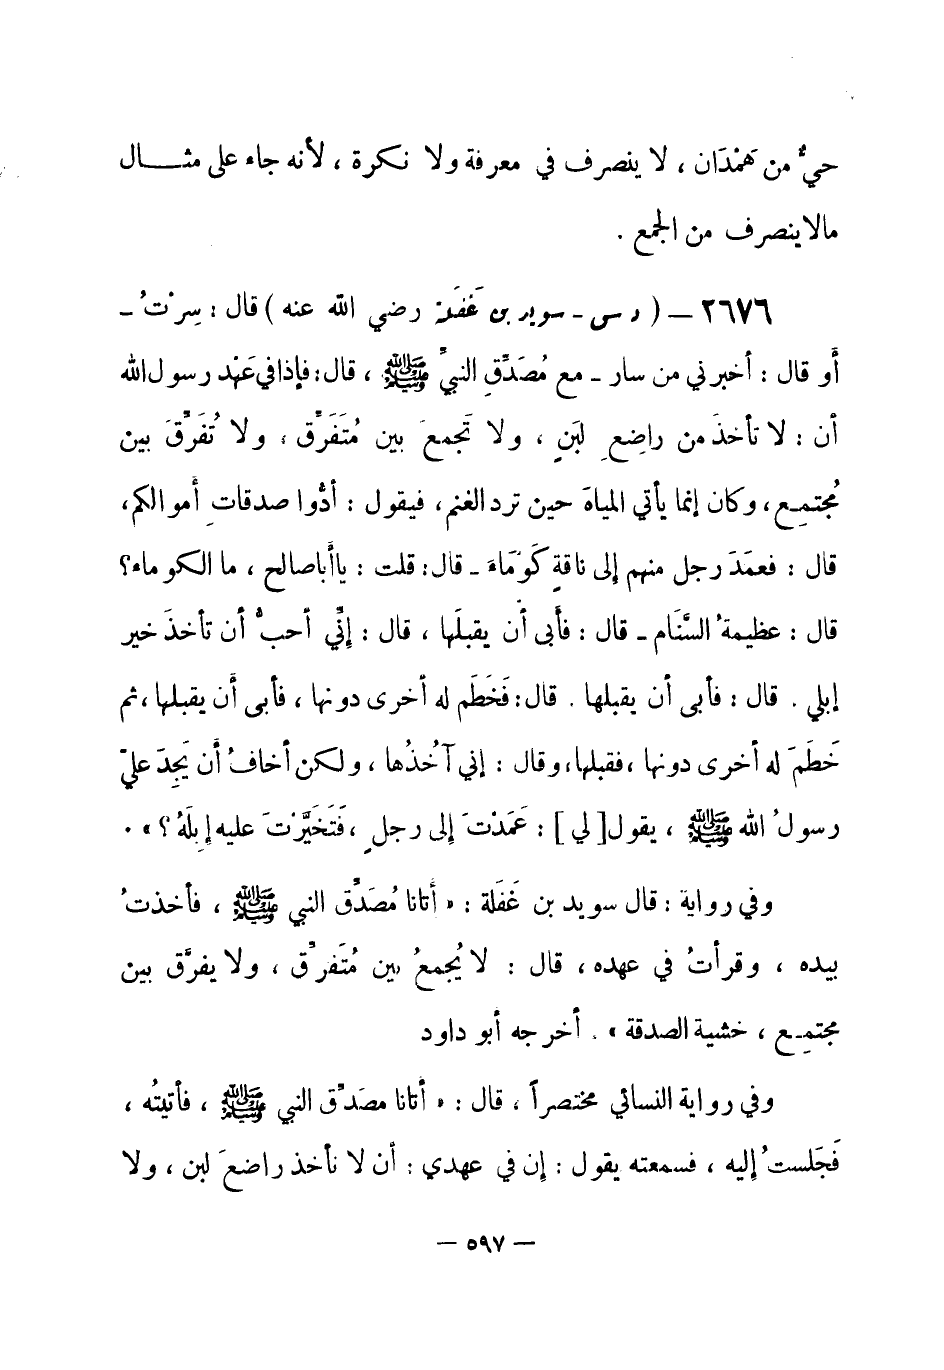 حيٌّ من هَمْدَان ، لا ينصرف في معرفة ولا نكرة ، لأنه جاء على مثـــال
مالاينصرف من الجمع .
٢٦٧٦ – ( د س - سويد بن غَفَلَة رضي الله عنه ) قال : سِرْتُ -
أَو قال : أخبرني من سار - مع مُصَدِّقِ النبيِّ ﷺ ، قال: فإذا في عَهْد رسول الله
أن : لا تأخذَ من راضِعِ لَبَنٍ ، ولا تَجمعَ بين مُتَفَرِّق ، ولا تُفَرِّقَ بين
مُجتمِع ، وكان إنما يأتي المياهَ حين ترد الغنم ، فيقول : أدُّوا صدقاتِ أموالكم ،
قال : فعمَدَ رجل منهم إلى ناقةٍ كَوْمَاءَ - قال: قلت : ياأَباصالح ، ما الكوماء؟
قال : عظيمةُ السَّنَام - قال : فأَبى أن يقبلَها ، قال : إنِّي أحبُّ أن تأخذَ خير
إبلي . قال : فأبى أن يقبلها . قال: فَخَطَم له أخرى دونها ، فأبى أن يقبلها ، ثم
خَطَمَ له أخرى دونها ، فقبلها، وقال : إني آخُذُها ، ولكن أخافُ أن يَجِدَ عليَّ
رسولُ الله ﷺ ، يقول [ لي ] : عَمَدْتَ إلى رجلٍ ، فَتَخَيَّرْتَ عليه إبلَهُ ؟ » .
وفي رواية : قال سويد بن غَفَلة : « أتانا مُصَدِّق النبي ﷺ ، فأخذتُ
بيده ، وقرأتُ في عهده ، قال : لا يُجمعُ بين مُتَفرِّق ، ولا يفرَّق بين
مجتمِع ، خشية الصدقة » . أخرجه أبو داود
وفي رواية النسائي مختصراً ، قال : « أتانا مصَدِّق النبي ﷺ ، فأتيتُه ،
فَجَلستُ إليه ، فسمعته يقول : إن في عهدي : أن لا نأخذ راضعَ لبن ، ولا
– ٥٩٧ –